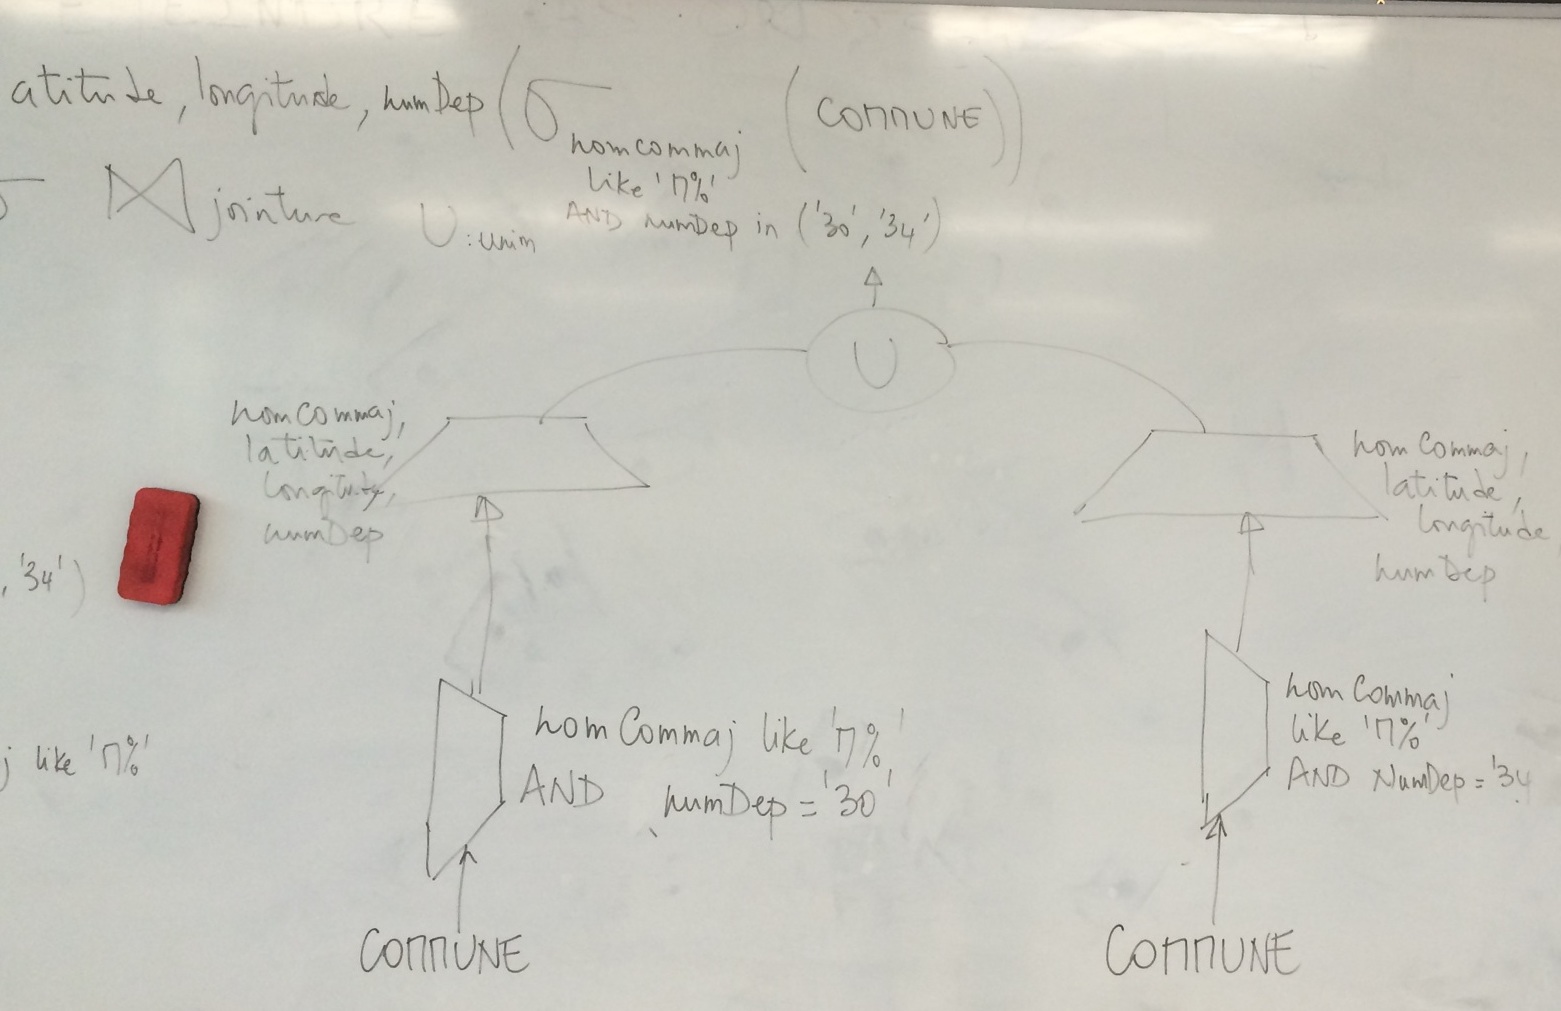 atitude, longitude, numDep (σ (COMMUNE))
nomcommaj
like 'M%'
AND numDep in ('30', '34')
⋈ jointure
U : union
U
nomCommaj,
latitude,
numDep
nomCommaj,
latitude,
longitude
numDep
, '34')
j like 'M%'
nomCommaj like 'M%'
AND numDep = '30'
nomCommaj
like 'M%'
AND NumDep = '34
COMMUNE
COMMUNE